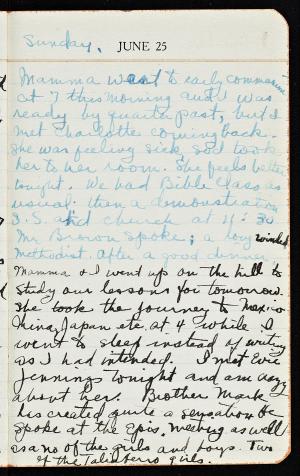 Sunday.
JUNE 25
Mamma went to early communion
at 7 this morning and I was
ready by quarter past, but I
met Charlotte coming back.
She was feeling sick, so I took
her to her room. She feels better
tonight. We had Bible Class as
usual. then a demonstration
S.S. and church at 11:30
Mr. Brown spoke; a long winded
Methodist. After a good dinner
Mamma & I went up on the hill to
study our lessons for tomorrow.
She took the journey to Mexico
China, Japan etc. at 4 while I
went to sleep instead of writing
as I had intended. I met Evie
Jennings tonight and am crazy
about her. Brother Mark
has created quite a sensation. He
spoke at the Epis. meeting as well
as a no of the girls and boys. Two
of the Taliaferro girls.